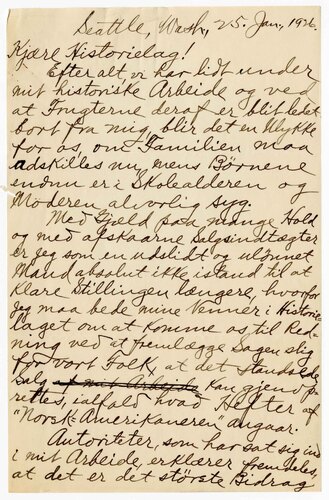 Seattle, Wash, 25. Jan., 1926.
Kjære Historielag!
Efter alt vi har lidt under
mit historiske Arbeide og ved
at Frugterne deraf er blit ledet
bort fra mig, blir det en Ulykke
for os, om Familien maa
adskilles nu, mens Børnene
endnu er i Skolealderen og
Moderen alvorlig syg.
Med Gjæld paa mange Hold
og med afskaarne Salgsindtægter
er jeg som en udslidt og ulønnet
Mand absolut ikke istand til at
klare Stillingen længere, hvorfor
jeg maa bede mine Venner i Historie
laget om at komme os til Red-
ning ved at fremlægge Sagen slig
for vort Folk, at det standsede
Salg kan gjenop-
rettes, ialfald hvad Hefter af
"Norsk-Amerikaneren" angaar!
Autoriteter, som har sat sig ind
i mit Arbeide, erklærer fremdeles,
at det er det største Bidrag